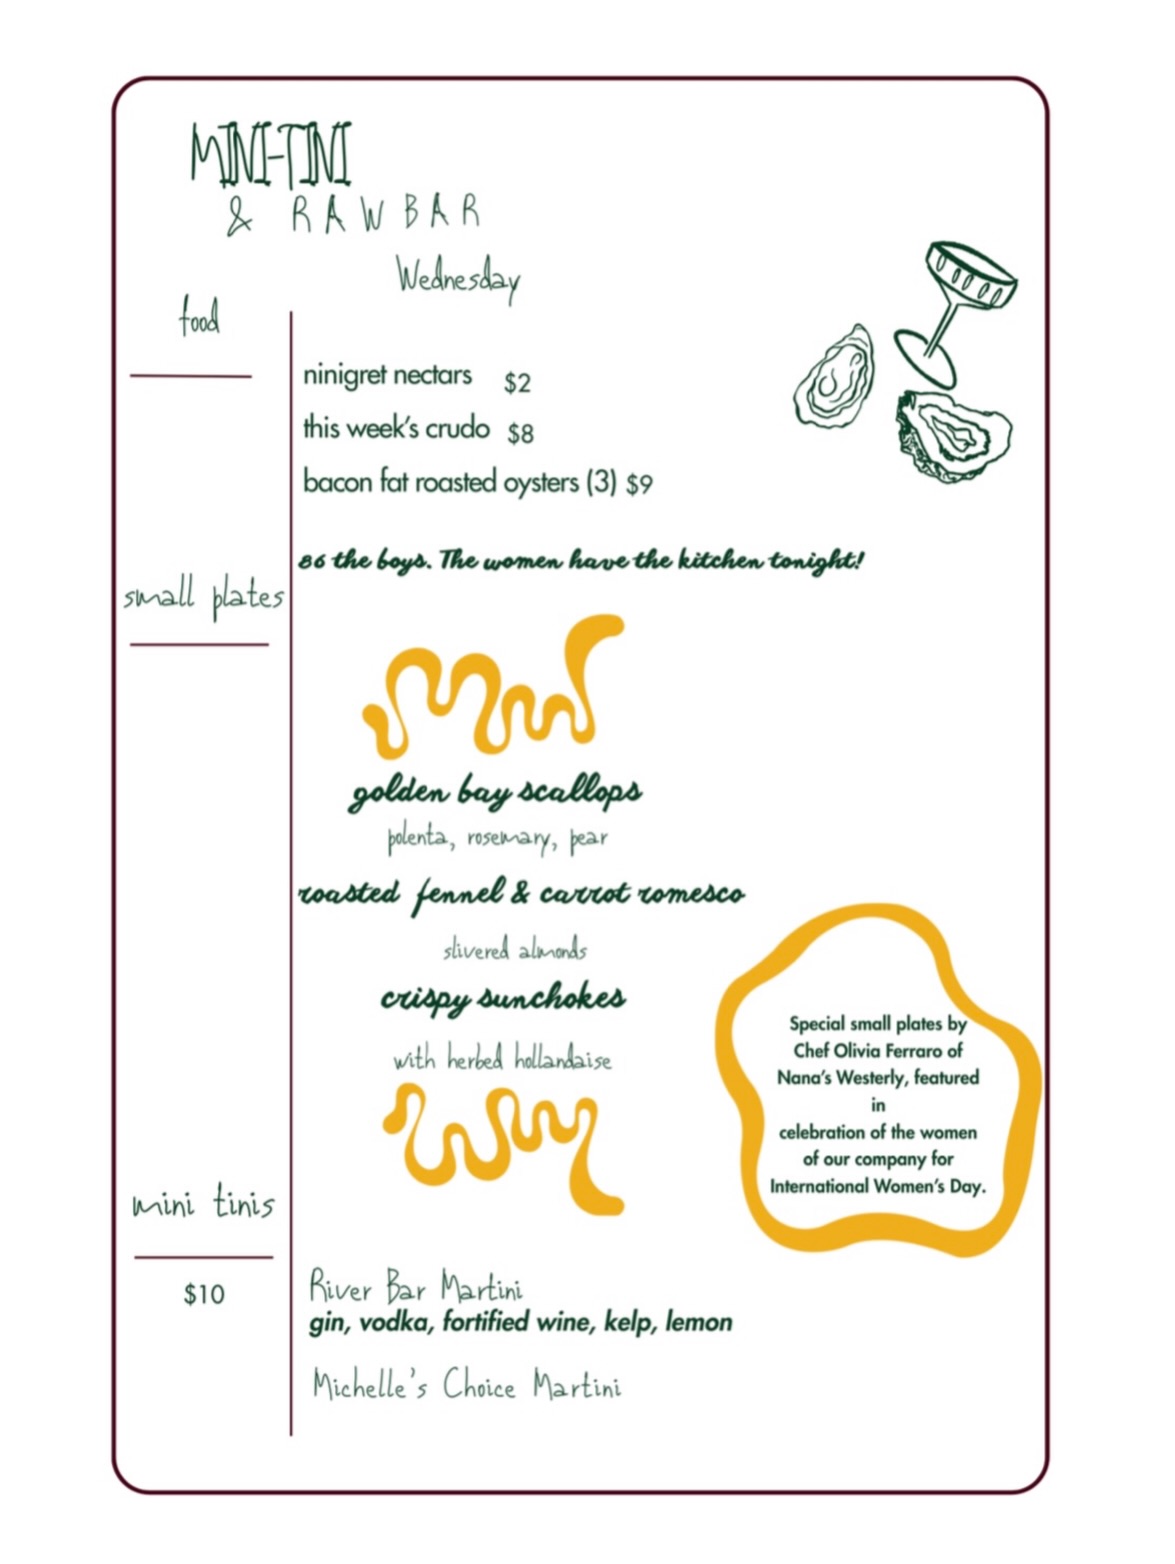 MINI-TINI
& RAW BAR
Wednesday
food
ninigret nectars $2
this week's crudo $8
bacon fat roasted oysters (3) $9
86 the boys. The women have the kitchen tonight!
small plates
golden bay scallops
polenta, rosemary, pear
roasted fennel & carrot romesco
slivered almonds
crispy sunchokes
with herbed hollandaise
Special small plates by
Chef Olivia Ferraro of
Nana's Westerly, featured
in
celebration of the women
of our company for
International Women's Day.
mini tinis
$10
River Bar Martini
gin, vodka, fortified wine, kelp, lemon
Michelle's Choice Martini